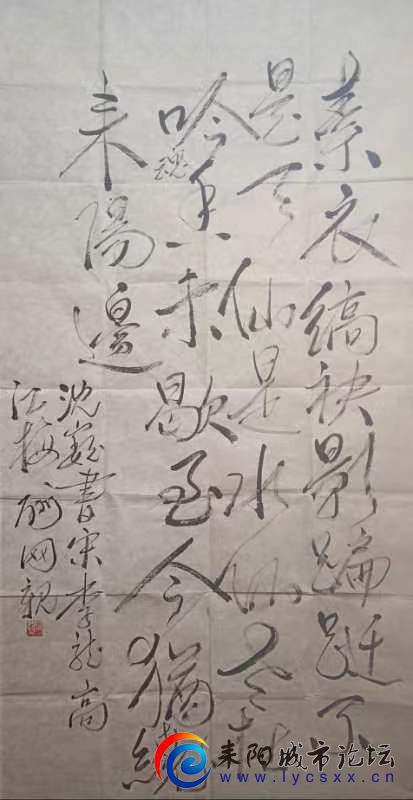 素衣縞袂影蹁跹不
是天仙是水仙老杜
吟魂香未歇至今猶繞
耒陽邊
沈巍書宋李龙高
江梅 酬网親
耒阳城市论坛
www.lycsxx.cn